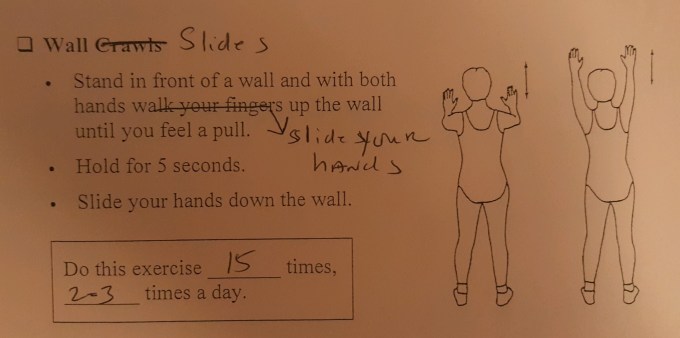 ☐ Wall Crawls Slides
• Stand in front of a wall and with both
hands walk your fingers up the wall
until you feel a pull. slide your
hands
• Hold for 5 seconds.
• Slide your hands down the wall.
Do this exercise 15 times,
2-3 times a day.